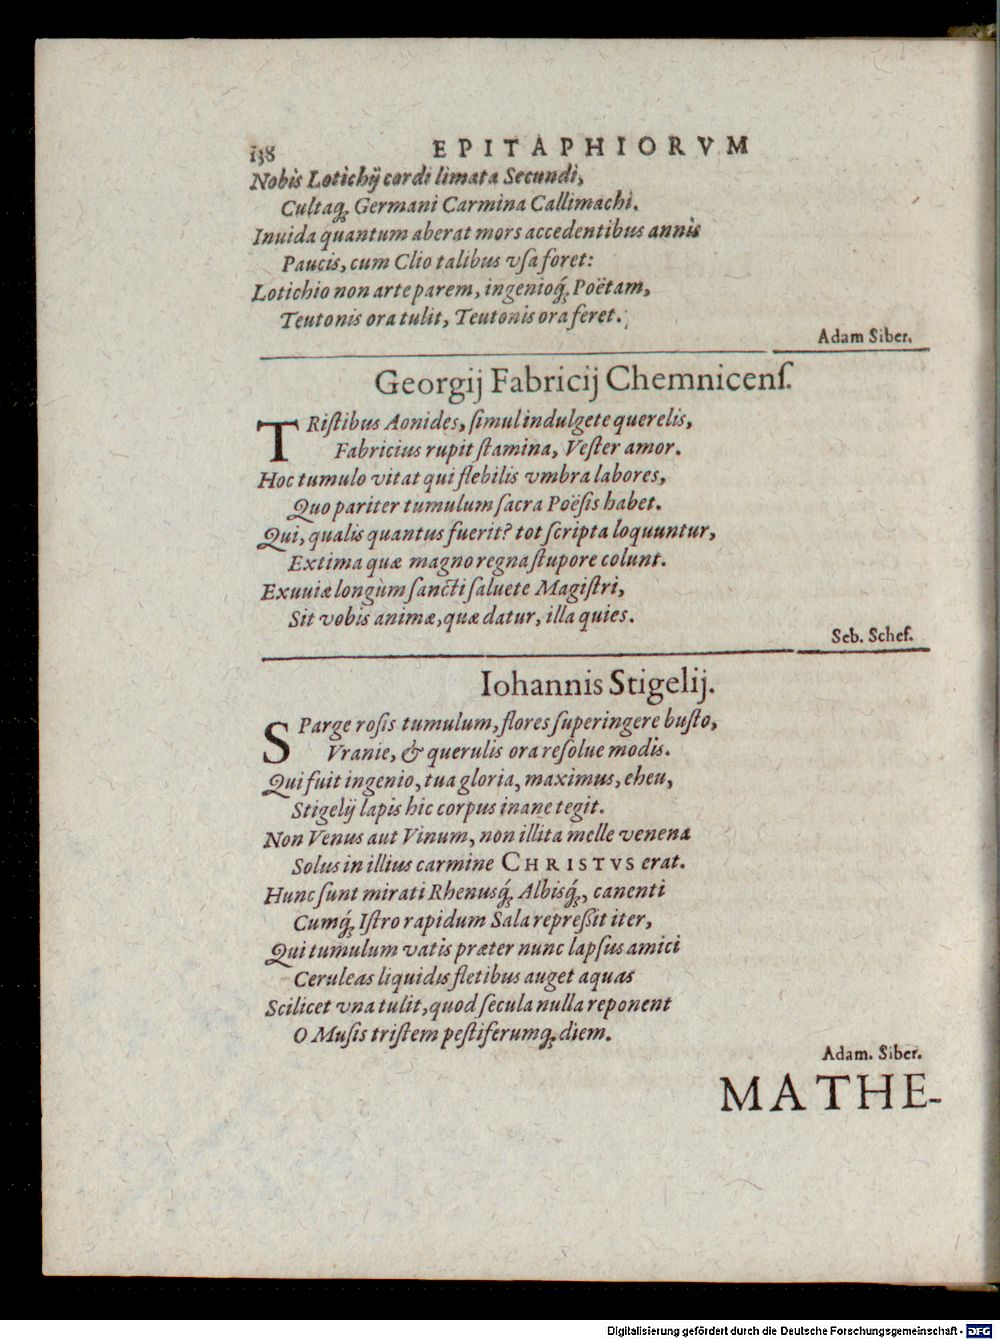 138 EPITAPHIORVM
Nobis Lotichij cordi limata Secundi,
Cultaq́; Germani Carmina Callimachi.
Inuida quantum aberat mors accedentibus annis
Paucis, cum Clio talibus vſa foret:
Lotichio non arte parem, ingenioq́; Poëtam,
Teutonis ora tulit, Teutonis ora feret.
Adam Siber.
Georgij Fabricij Chemnicenſ.
TRiſtibus Aonides, ſimul indulgete querelis,
Fabricius rupit ſtamina, Veſter amor.
Hoc tumulo vitat qui flebilis vmbra labores,
Quo pariter tumulum ſacra Poëſis habet.
Qui, qualis quantus fuerit? tot ſcripta loquuntur,
Extima quæ magno regna ſtupore colunt.
Exuuiæ longùm ſancti ſaluete Magiſtri,
Sit vobis animæ, quæ datur, illa quies.
Seb. Schef.
Iohannis Stigelij.
SParge roſis tumulum, flores ſuperingere buſto,
Vranie, & querulis ora reſolue modis.
Qui fuit ingenio, tua gloria, maximus, eheu,
Stigelij lapis hic corpus inane tegit.
Non Venus aut Vinum, non illita melle venena
Solus in illius carmine CHRISTVS erat.
Hunc ſunt mirati Rhenusq́; Albisq́;, canenti
Cumq́; Iſtro rapidum Sala repreſſit iter,
Qui tumulum vatis præter nunc lapſus amici
Ceruleas liquidis fletibus auget aquas
Scilicet vna tulit, quod ſecula nulla reponent
O Muſis triſtem peſtiferumq́; diem.
Adam. Siber.
MATHE-
Digitalisierung gefördert durch die Deutsche Forschungsgemeinschaft - DFG